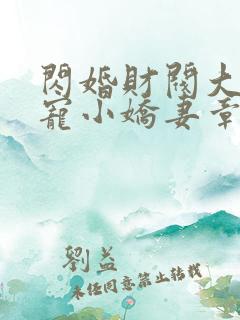 閃婚財閥大
寵小嬌妻章
劉益
未任同意禁止转载